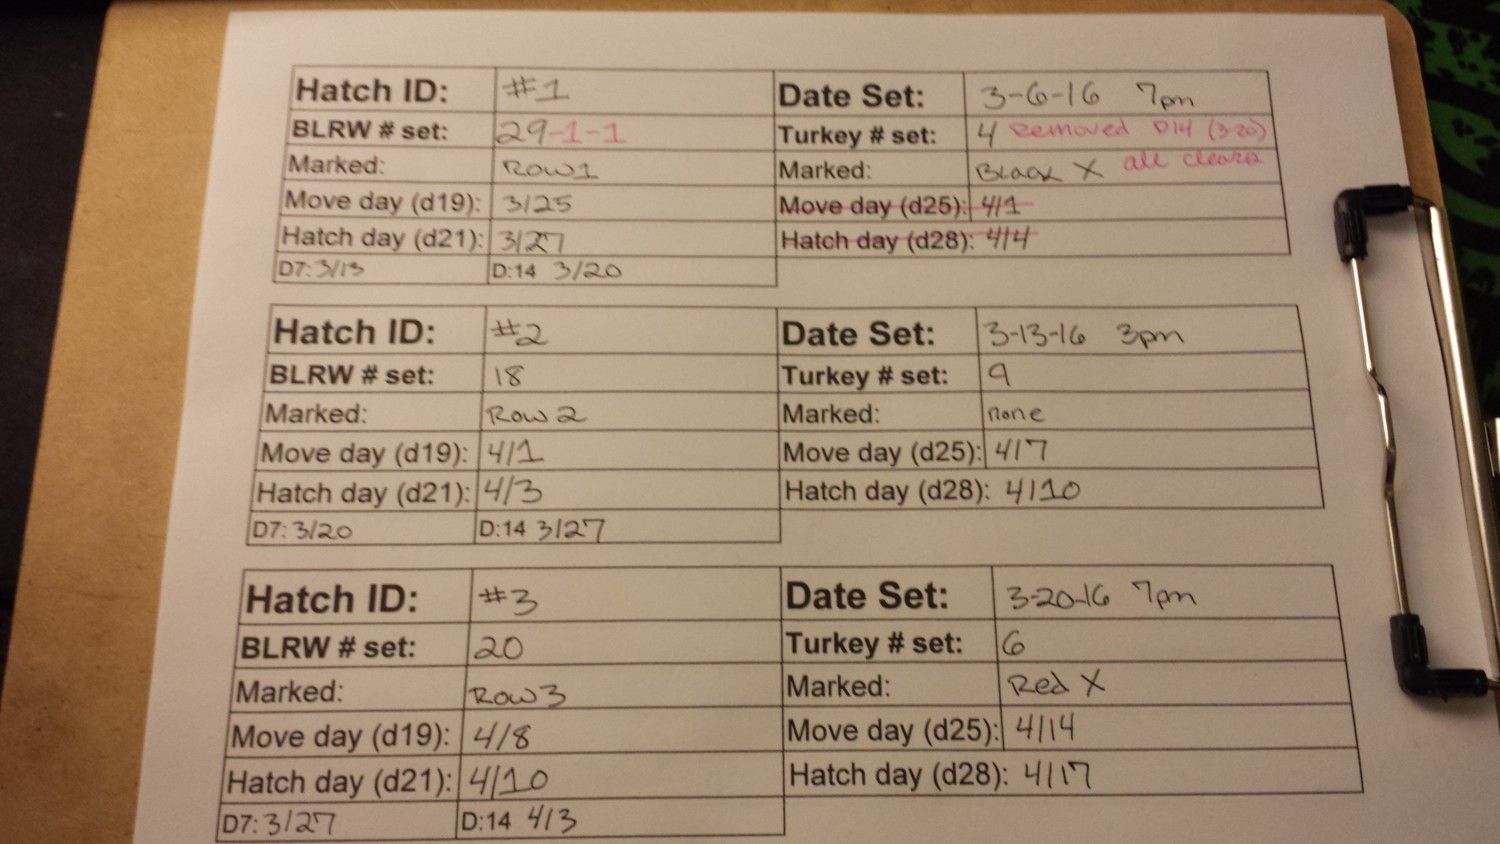 Hatch ID: #1 Date Set: 3-6-16 7pm
BLRW # set: 29-1-1 Turkey # set: 4 Removed D14 (3-20)
Marked: Row1 Marked: Black X all clears
Move day (d19): 3/25 Move day (d25): 4/1
Hatch day (d21): 3/27 Hatch day (d28): 4/4
D7: 3/13 D:14 3/20
Hatch ID: #2 Date Set: 3-13-16 3pm
BLRW # set: 18 Turkey # set: 9
Marked: Row 2 Marked: none
Move day (d19): 4/1 Move day (d25): 4/7
Hatch day (d21): 4/3 Hatch day (d28): 4/10
D7: 3/20 D:14 3/27
Hatch ID: #3 Date Set: 3-20-16 7pm
BLRW # set: 20 Turkey # set: 6
Marked: Row3 Marked: Red X
Move day (d19): 4/8 Move day (d25): 4/14
Hatch day (d21): 4/10 Hatch day (d28): 4/17
D7: 3/27 D:14 4/3